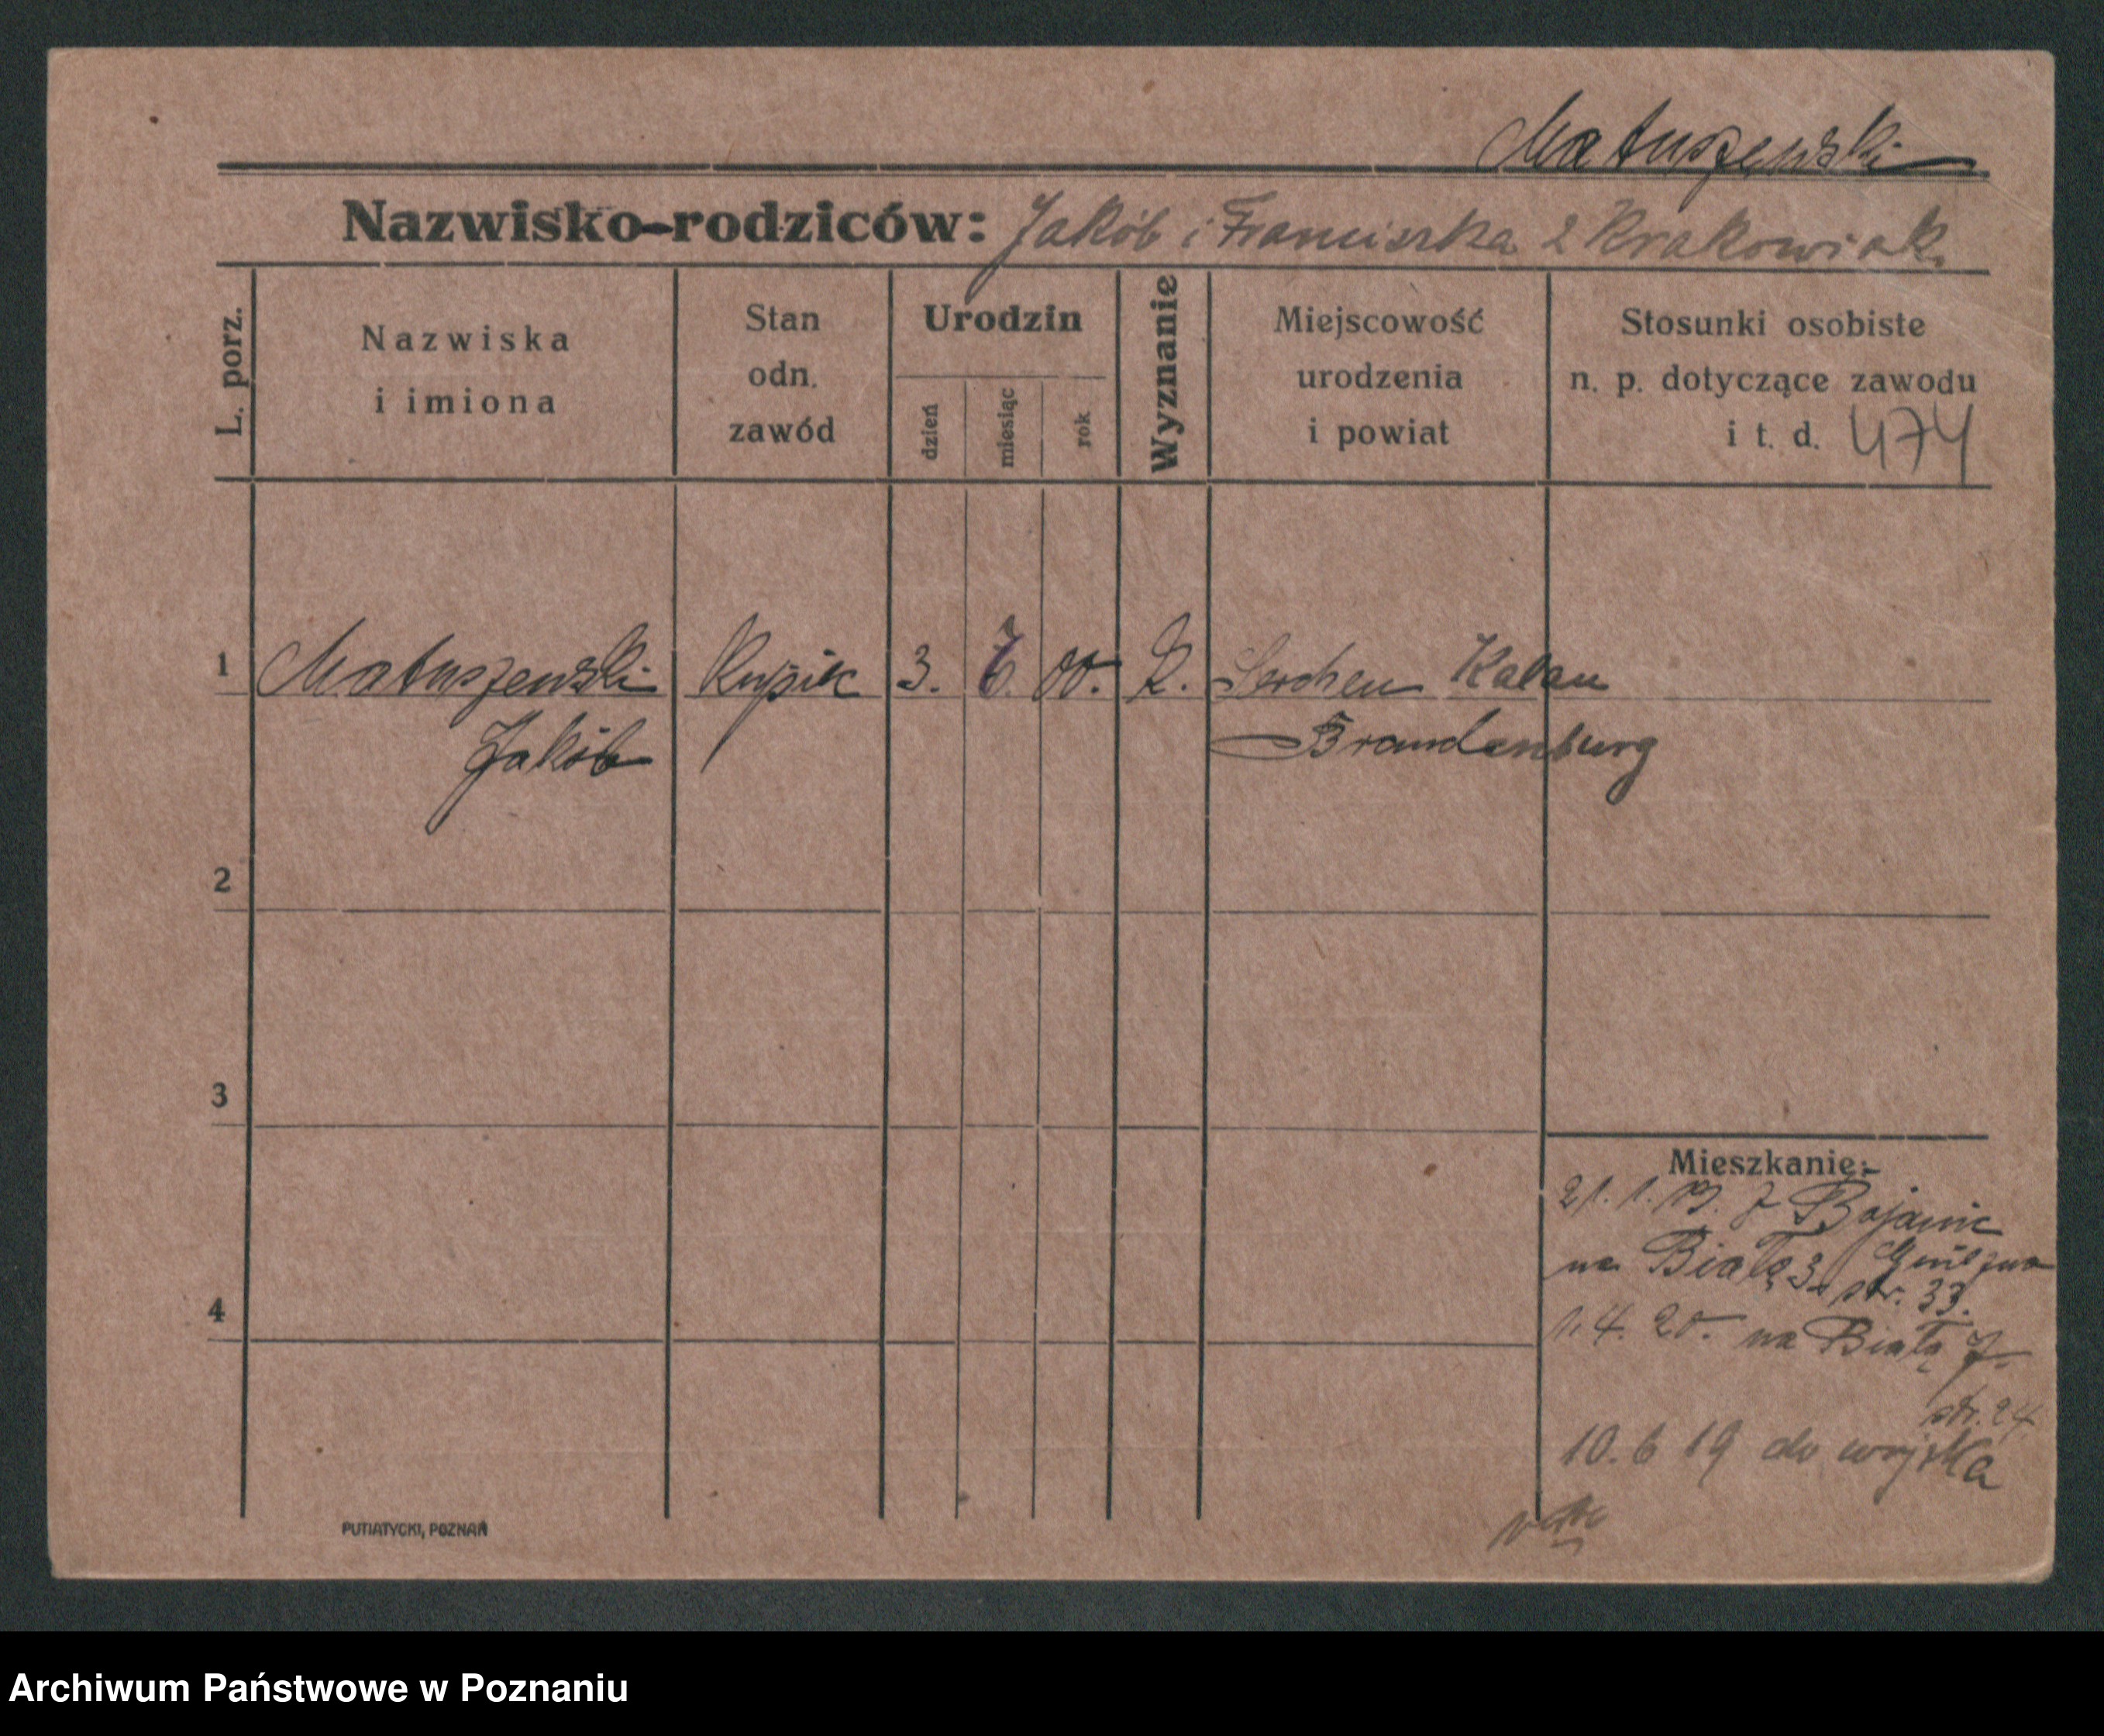 Matuszewski
Nazwisko-rodziców: Jakób i Franciszka z Krakowiak.
L. porz.
Nazwiska
i imiona
Stan
odn.
zawód
Urodzin
dzień
miesiąc
rok
Wyznanie
Miejscowość
urodzenia
i powiat
Stosunki osobiste
n. p. dotyczące zawodu
i t. d. 474
1 Matuszewski 3. 00. Kalau
Jakób Brandenburg
2
3
4
Mieszkanie:
21. 1. 19. z Bojanic
na Białą 3. Gniezna
str. 33.
1. 4. 20. na Białą
str. 24
10. 6 19 do wojska
PUTIATYCKI, POZNAŃ
Archiwum Państwowe w Poznaniu